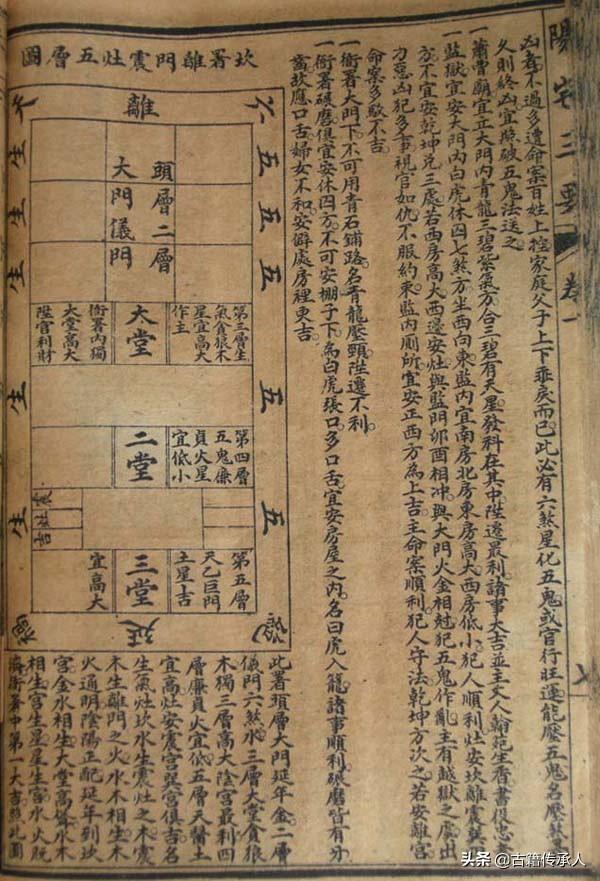 陽宅三要 卷一
凶者不過多遭命案百姓上控家庭父子上下乖戾而已此必有六煞星化五鬼或官行旺運能壓五鬼名壓煞
久則終凶宜照破五鬼法送之
一蕭曹廟宜立大門內青龍三碧紫氣方合三碧有天星發科在其中陞遷最利諸事大吉並主文人翰苑生香書役忠
一監獄宜安大門內白虎休囚七煞方坐西向東監內宜南房北房東房高大西房低小犯人順利灶安坎離震巽
方不宜安乾坤兌三處若西房高大西邊安灶與監門卯酉相冲與大門火金相尅犯五鬼作亂主有越獄之虞出
力惡凶犯多事視官如仇不服約束監內厠所宜安正西方為上吉主命案順利犯人守法乾坤方次之若安離宮
命案多駁不吉
一衙署大門下不可用青石鋪路名青龍壓頸陞遷不利
一衙署碾磨俱宜安休囚方不可安棚子下為白虎張口多口舌宜安房屋之內名曰虎入籠諸事順利碾磨皆有牙
齒故應口舌婦女不和安僻處房裡更吉
坎署離門震灶五層圖
離
五
五
五
五
五
生
生
生
生
生
頭層二層
大門儀門
第三層生
氣貪狼木
星宜高大
作主
大堂
衙署內獨
大堂高大
陞官利財
第四層
五鬼廉
貞火星
宜低小
二堂
震
灶
吉
第五層
天乙巨門
土星上吉
三堂
宜高大
延
此署頭層大門延年金二層
儀門六煞水三層大堂貪狼
木獨三層高大陰宮最利四
層廉貞火宜低五層天醫土
宜高灶安震宮巽宮俱吉名
生氣灶坎水生震灶之木震
木生離門之火水木相生木
火通明陰陽正配延年到坎
宮金水相生大堂高聳水木
相生宮生星星生宮水火既
濟衙署中第一大吉照此圖
头条 @古籍传承人